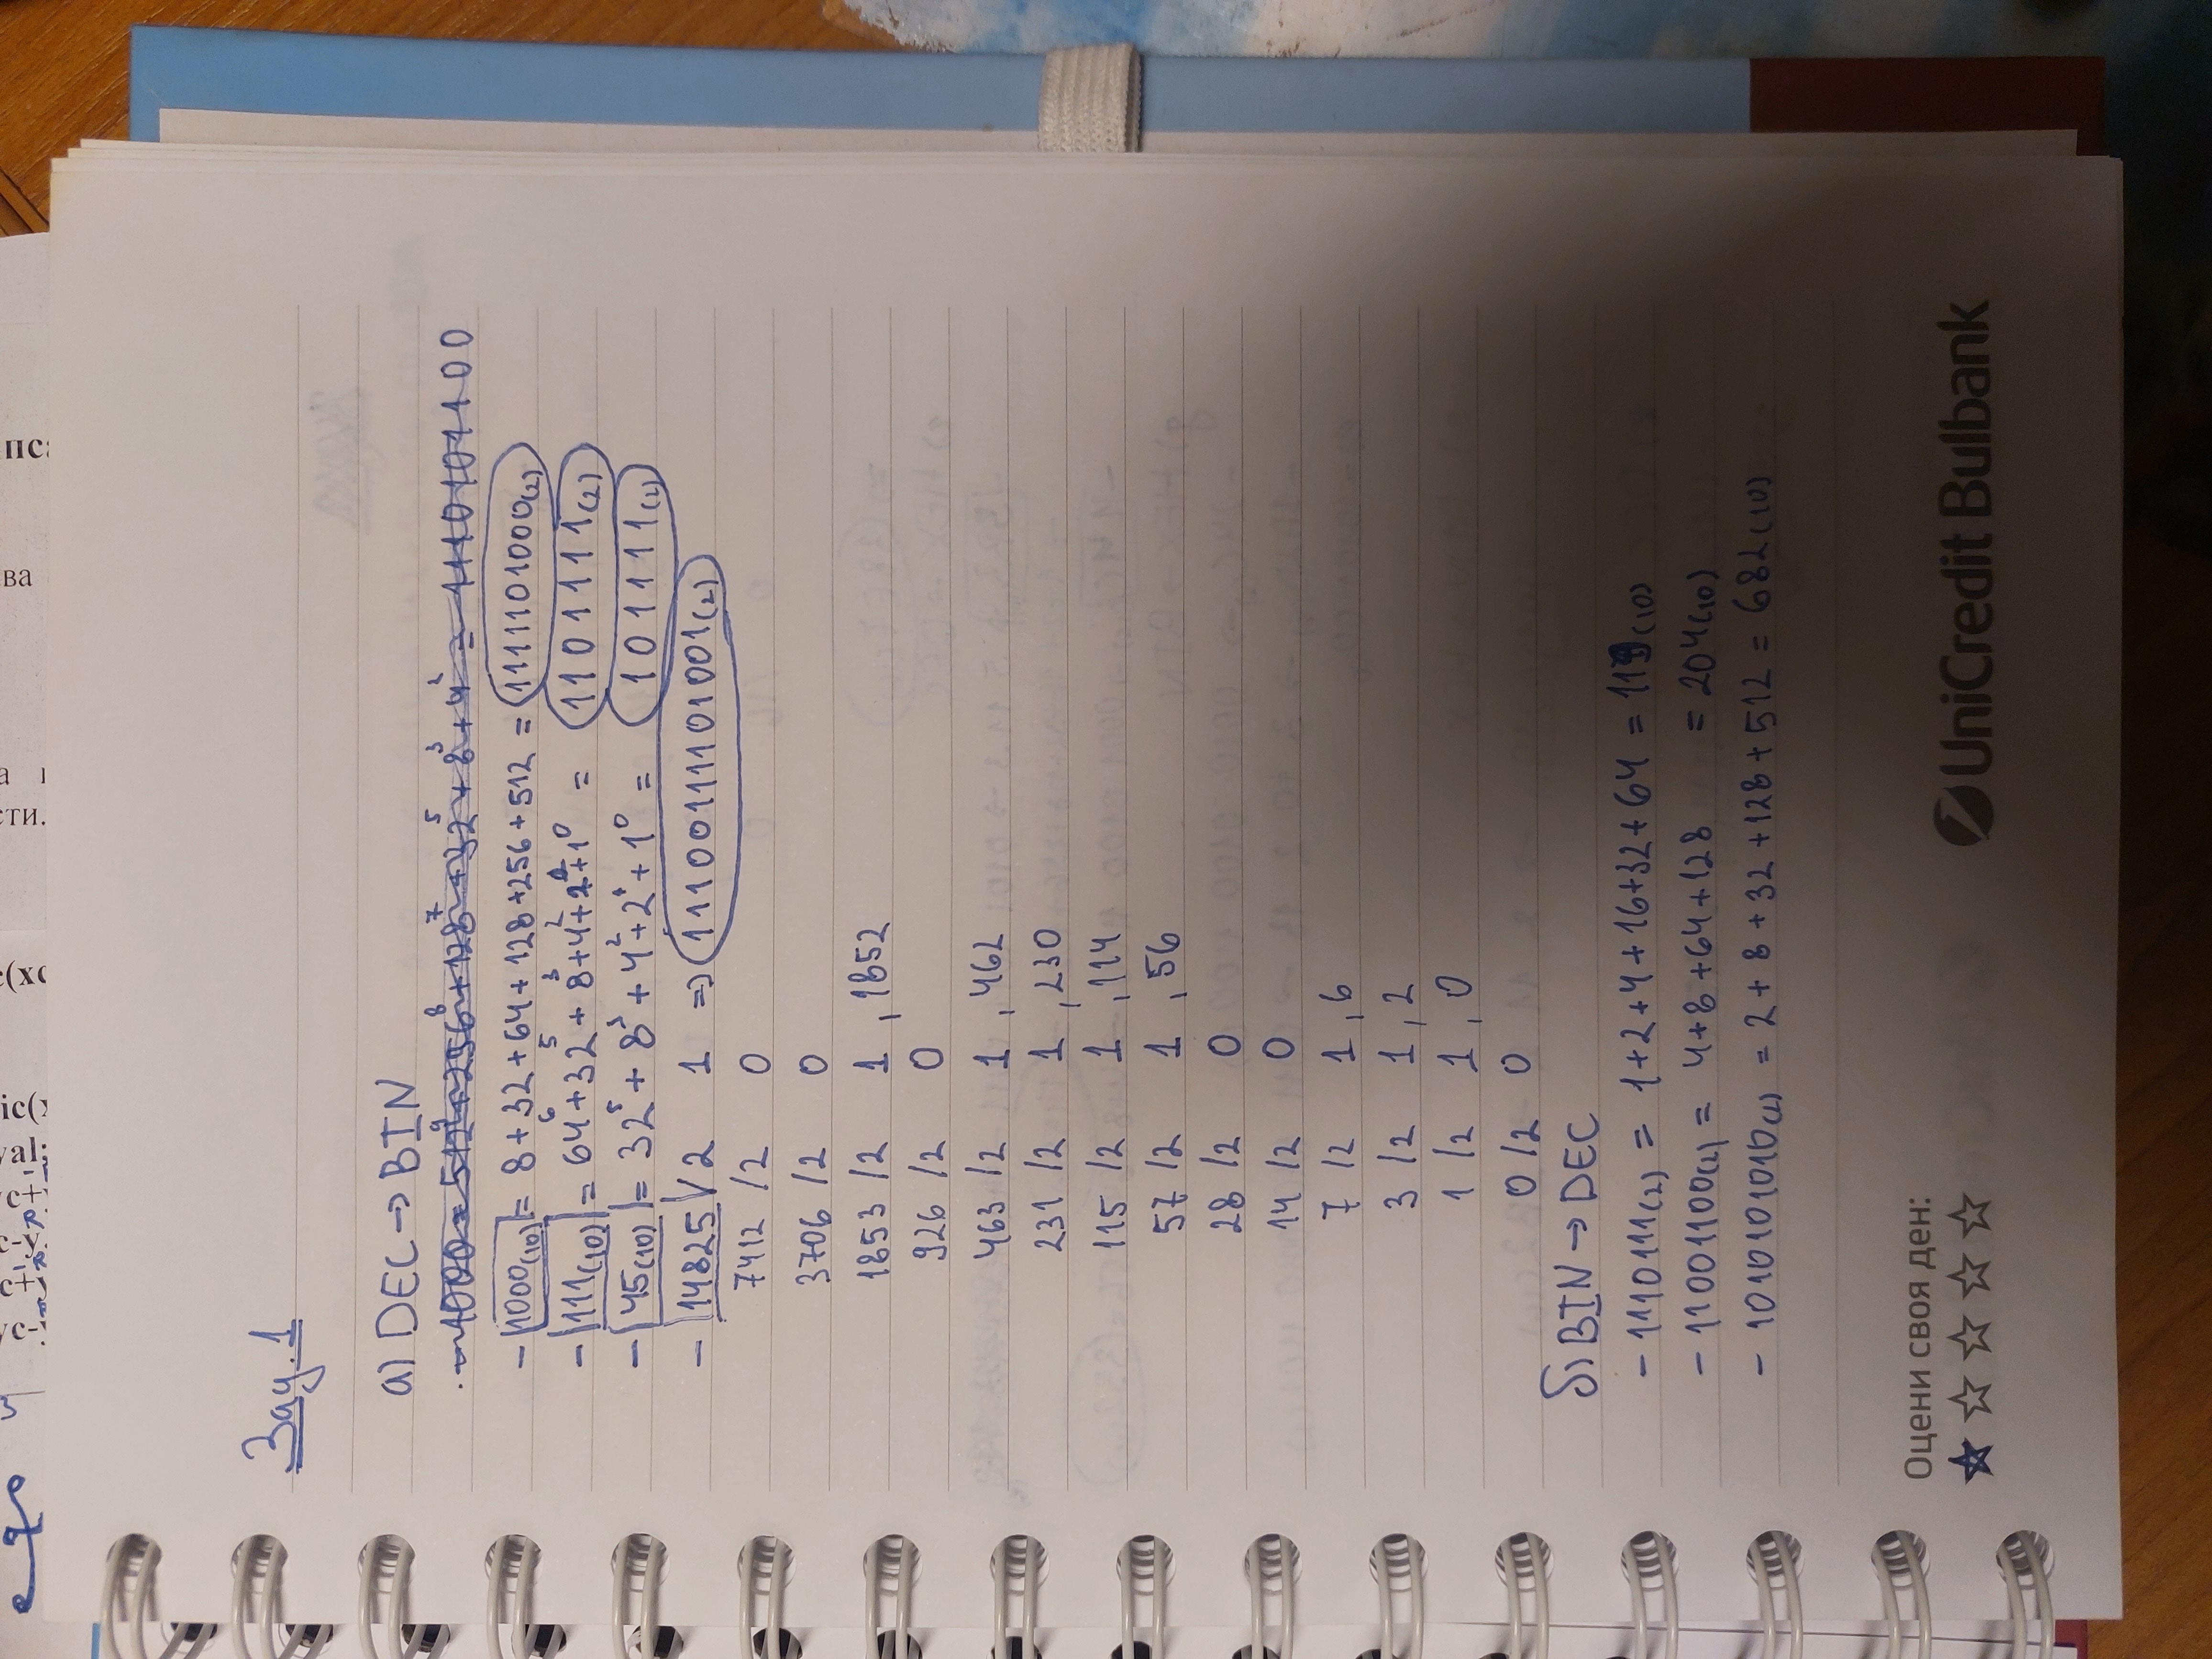 Зад. 1
а) DEC → BIN
- 1000 = 512⁹ + 256⁸ + 128⁷ + 32⁵ + 8³ + 4² = 1110101100
- 1000(10) = 8 + 32 + 64 + 128 + 256 + 512 = 1111101000(2)
- 111(10) = 64⁶ + 32⁵ + 8³ + 4² + 2¹ + 1⁰ = 1101111(2)
- 45(10) = 32⁵ + 8³ + 4² + 2¹ + 1⁰ = 101111(2)
- 14825 / 2 1 => 11100111101001(2)
7412 /2 0
3706 /2 0
1853 /2 1 , 1852
926 /2 0
463 /2 1 , 462
231 /2 1 , 230
115 /2 1 , 114
57 /2 1 , 56
28 /2 0
14 /2 0
7 /2 1 , 6
3 /2 1 , 2
1 /2 1 , 0
0 /2 0
б) BIN → DEC
- 1110111(2) = 1+2+4+16+32+64 = 119(10)
- 11001100(2) = 4+8+64+128 = 204(10)
- 1010101010(2) = 2 + 8 + 32 + 128 + 512 = 682(10)
Оцени своя ден:
UniCredit Bulbank